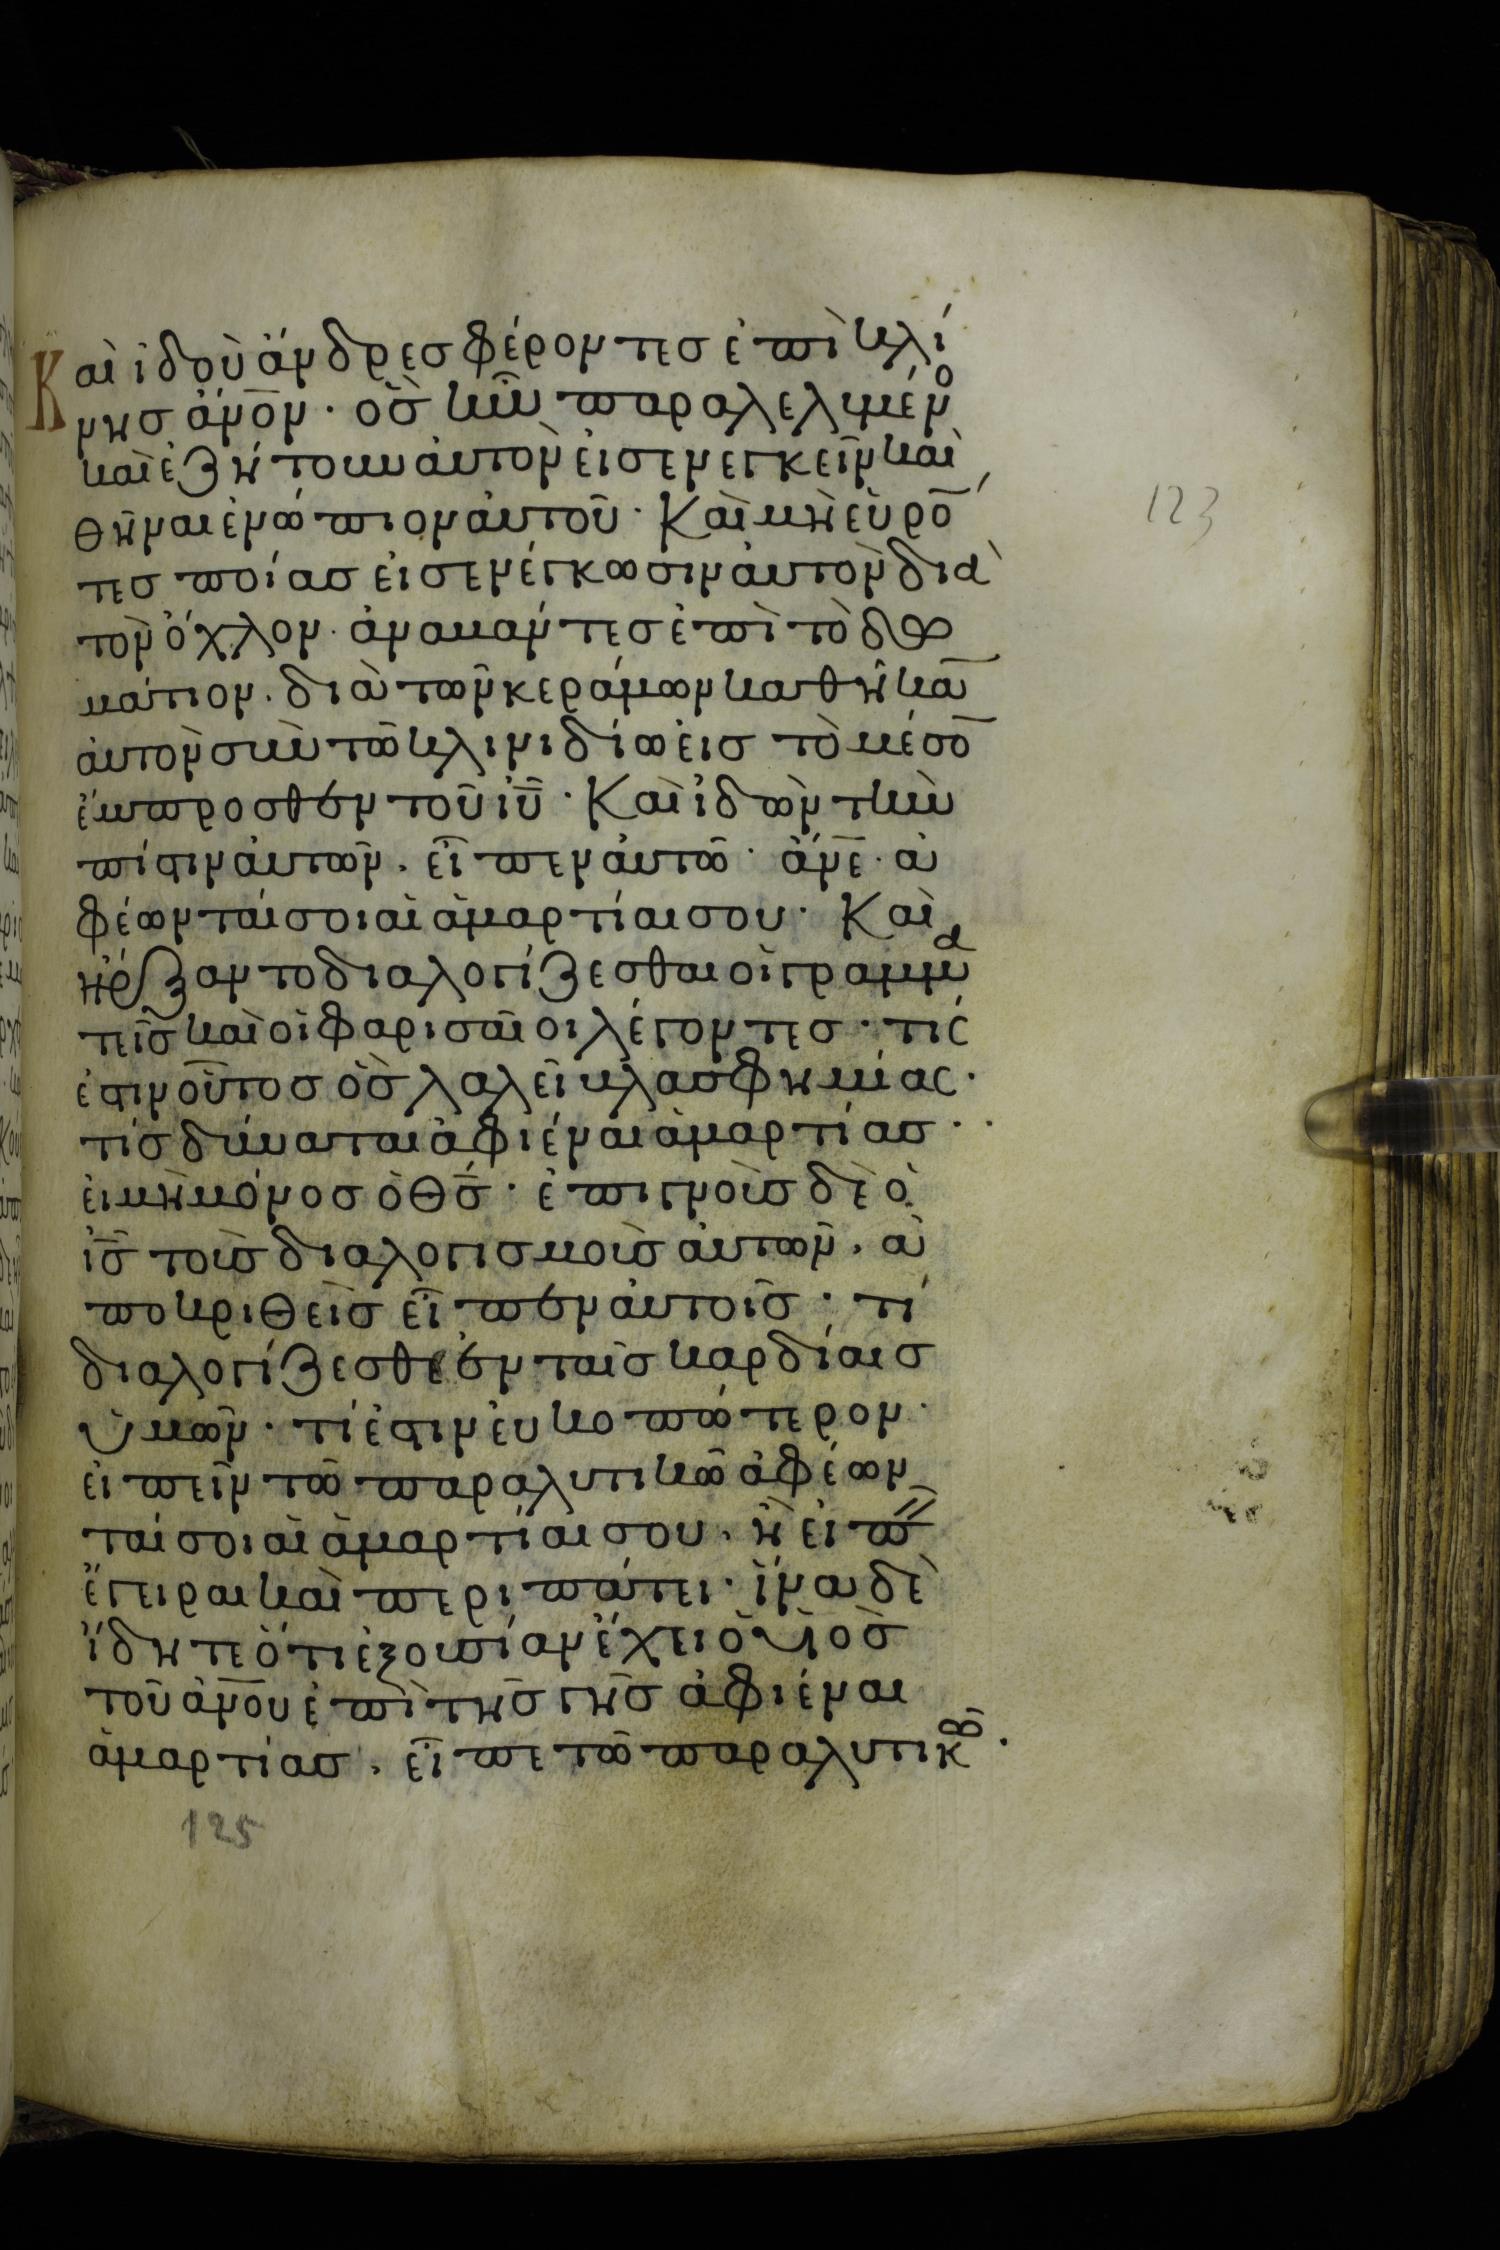 Καὶ ἰδοὺ ἄνδρες φέροντες ἐπὶ κλί
νης ἄν̅ον · ὃς ἦν παραλελυμένο
καὶ ἐζήτουν αὐτὸν εἰσενεγκεῖν καὶ
θῆναι ἐνώπιον αὐτοῦ · Καὶ μὴ εὑρό̅
τες ποίας εἰσενέγκωσιν αὐτὸν διὰ
τὸν ὄχλον · ἀναβάντες ἐπὶ τὸ δω
μάτιον · διὰ τῶν κεράμων καθῆκα̅
αὐτὸν σὺν τῶ κλινιδίω εἰς τὸ μέσο̅
ἔμπροσθεν τοῦ ἰυ̅ · Καὶ ἰδὼν τὴν
πίστιν αὐτῶν · εἶπεν αὐτῶ · ἄν̅ε · ἀ
φέωνταί σοι αἱ ἁμαρτίαι σου · Καὶ
ἤρξαντο διαλογίζεσθαι οἱ γραμμα
τεῖς καὶ οἱ φαρισαῖοι λέγοντες · τίς
ἐστιν οὗτος ὃς λαλεῖ βλασφημίας ·
τίς δύναται ἀφιέναι ἁμαρτίας · ·
εἰ μὴ μόνος ὁ θς̅ · ἐπιγνοὺς δὲ ὁ
ἰς̅ τοὺς διαλογισμοὺς αὐτῶν · ἀ
ποκριθεὶς εἶπεν αὐτοῖς · τί
διαλογίζεσθε ἐν ταῖς καρδίαις
ὑμῶν · τί ἐστιν εὐκοπώτερον ·
εἰπεῖν τῶ παραλυτικῶ ἀφέων
ταί σοι αἱ ἁμαρτίαι σου · ἢ εἰπ
ἔγειραι καὶ περιπάτει · ἵνα δὲ
ἴδητε ὅτι ἐξουσίαν ἔχει ὁ υἱὸς
τοῦ ἀν̅ου ἐπὶ τῆς γῆς ἀφιέναι
ἁμαρτίας · εἶπε τῶ παραλυτικῶ ·
123
125